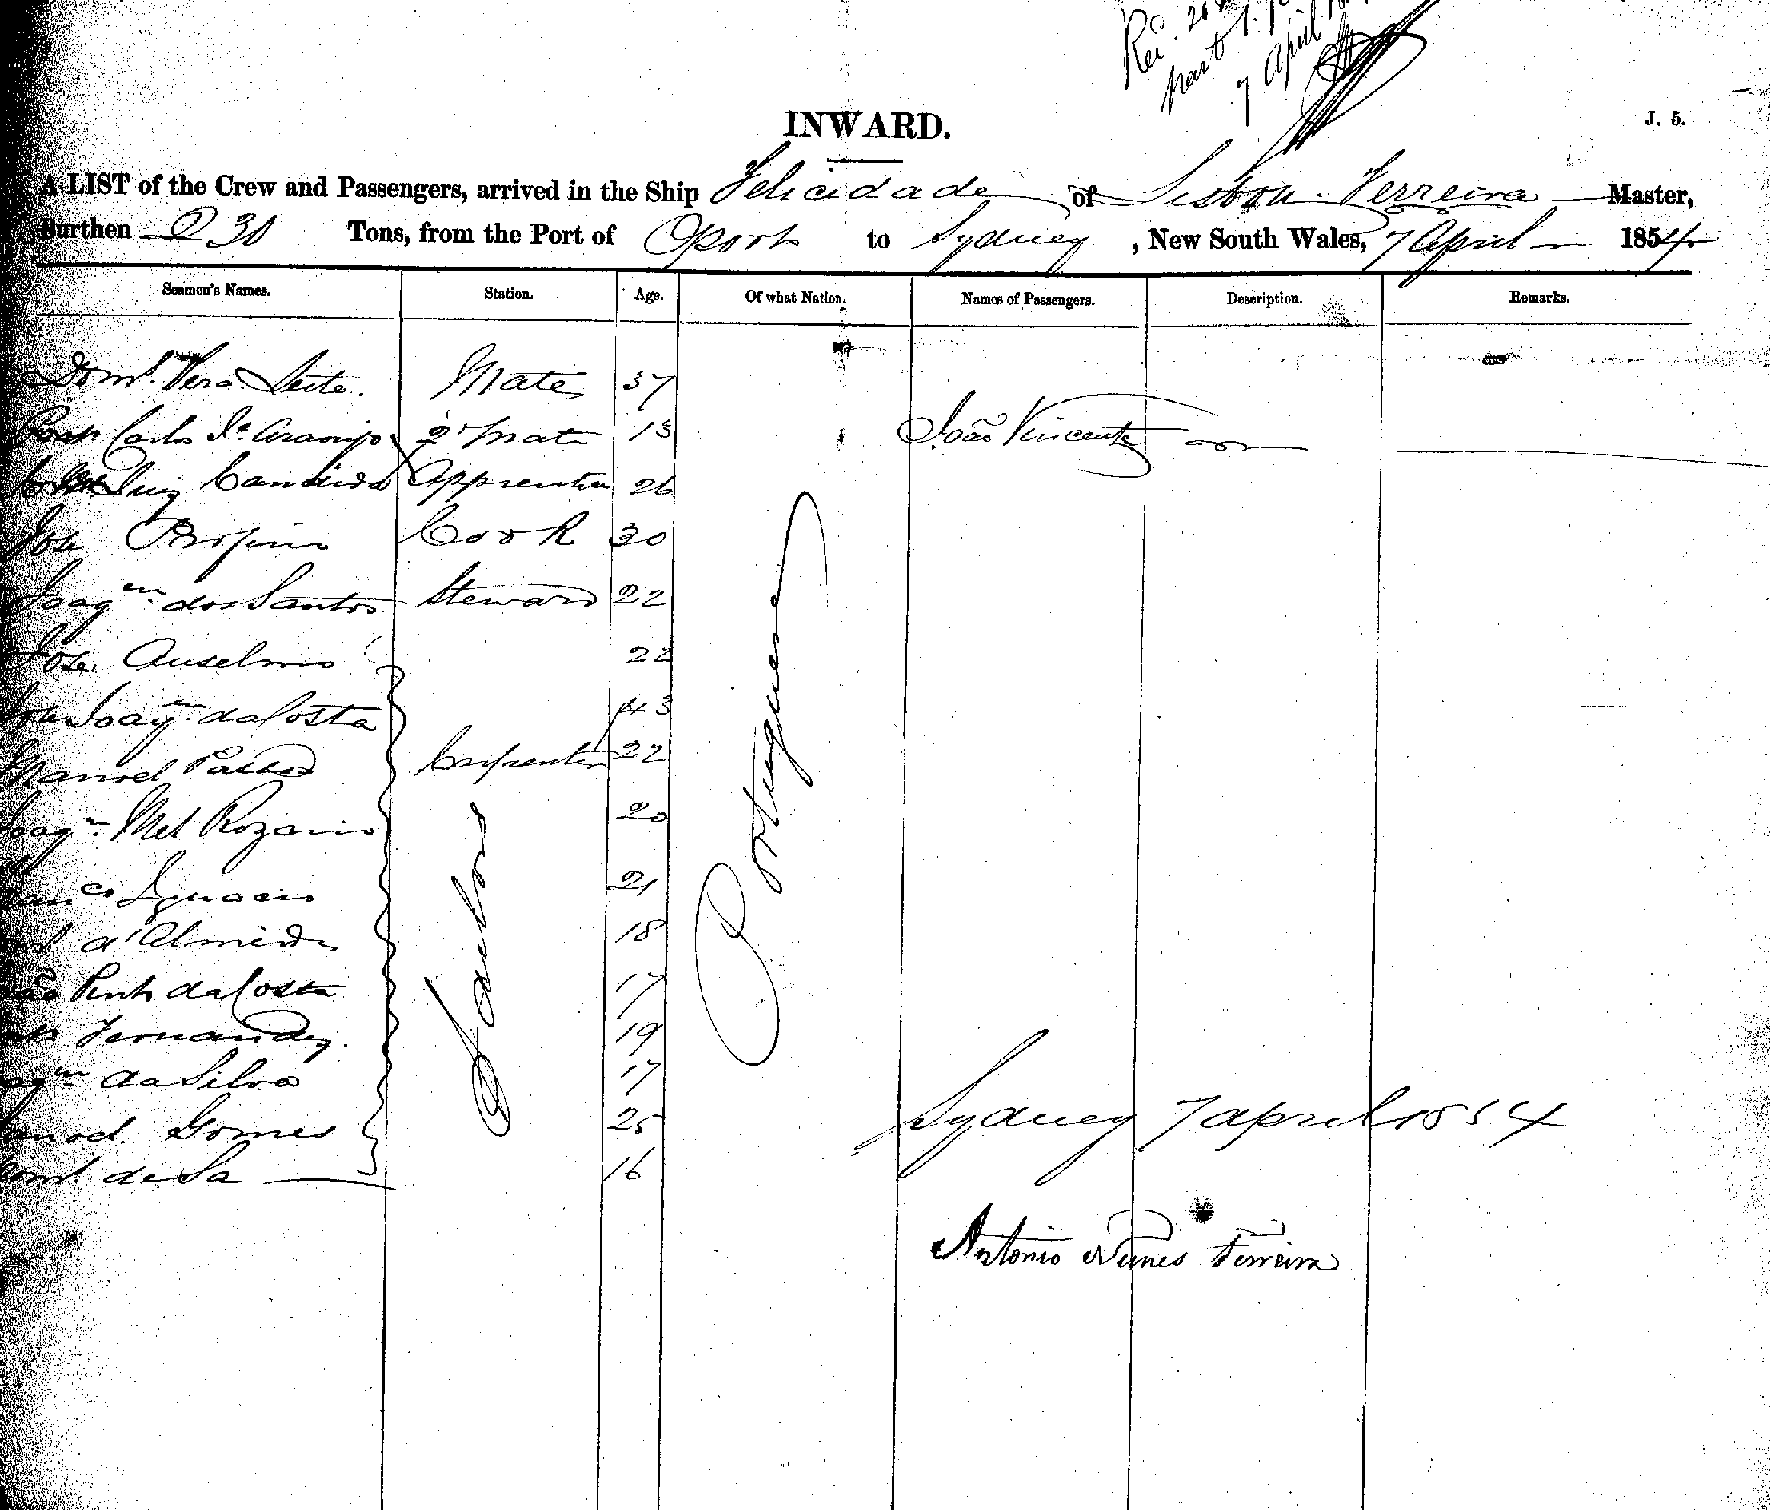 Rec. 26
past
7 April
INWARD.
J. 5.
A LIST of the Crew and Passengers, arrived in the Ship Felicidade of Lisbon Ferreira Master,
Burthen 230 Tons, from the Port of Oporto to Sydney, New South Wales, 7 April 1854
Seamen's Names. Station. Age. Of what Nation. Names of Passengers. Description. Remarks.
Leite. Mate 37
Carlos Araonjo 2d Mate 13 João Vincente
Luiz Candido Apprentice 26
Jose Cook 30
Joaqm dos Santos Steward 22
Jose Anselmo 22
Joaqm da Costa 43
Manoel Carpenter 22
Joaqm Mel Rozario 20
Ignacio 21
d'Almeida 18
João Pinto da Costa 17
Fernandez. 19
da Silva 17
Manoel Gomes 25
de Sa 16
Sailors
Portuguese
Sydney 7 April 1854
Antonio Nunes Ferreira